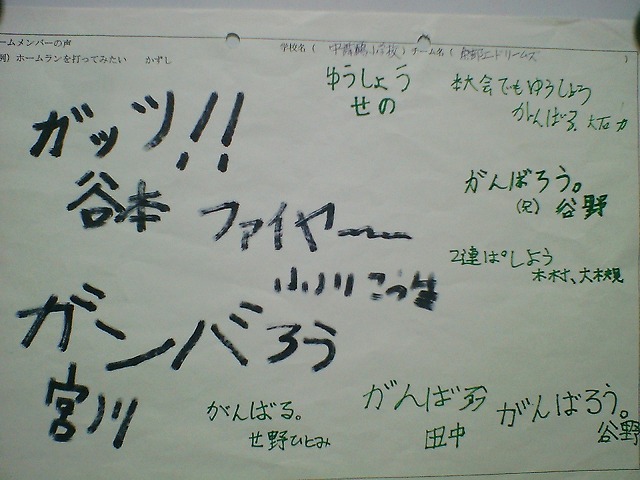 ームメンバーの声
学校名（
小学校）チーム名（
ドリームズ
）
例）ホームランを打ってみたい　かずし
ゆうしょう
せの
本大会でもゆうしょう
がんばる。大石 力
ガッツ!!
谷本
がんばろう。
(兄) 谷野
ファイヤー
小川
2連ぱしよう
木村、大槻
ガンバろう
宮川
がんばる。
世野ひとみ
がんばろう
田中
がんばろう。
谷野